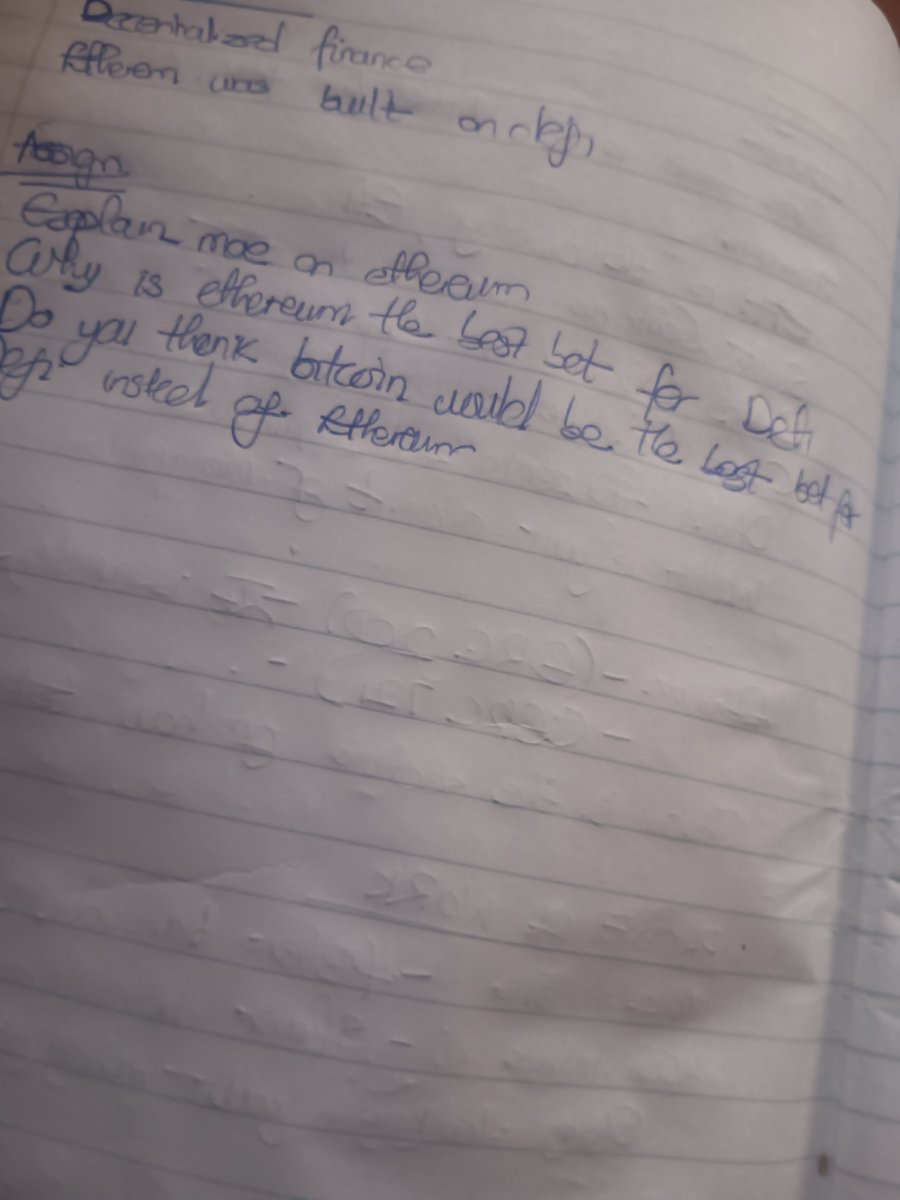 Decentralized finance
Etherem was built on defi
Assign
Explain moe on ethereum
Why is ethereum the best bet for Defi
Do you thenk bitcoin would be the best bet for
Defi insted of Ethereum